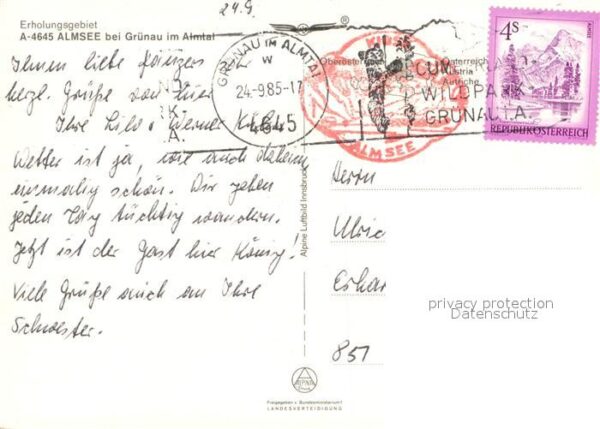 24.9.
Erholungsgebiet
A-4645 ALMSEE bei Grünau im Almtal
Ihnen liebe
herzl. Grüße von hier
Ihre
Wetter ist ja, wie auch daheim
einmalig schön. Wir gehen
jeden Tag tüchtig wandern.
Jetzt ist der Gast hier König.
Viele Grüße auch an Ihre
Schwester.
GRÜNAU IM ALMTAL
W
24.-9.85-17
4645
Oberösterreich
Österreich
Austria
Autriche
CUM
WILDPARK
GRÜNAU I.A.
ALMSEE
4S
ALMSEE
REPUBLIK ÖSTERREICH
Alpine Luftbild Innsbruck
Herrn
Ulric
Erhar
851
privacy protection
Datenschutz
ALPINE
Freigegeben v. Bundesministerium f.
LANDESVERTEIDIGUNG